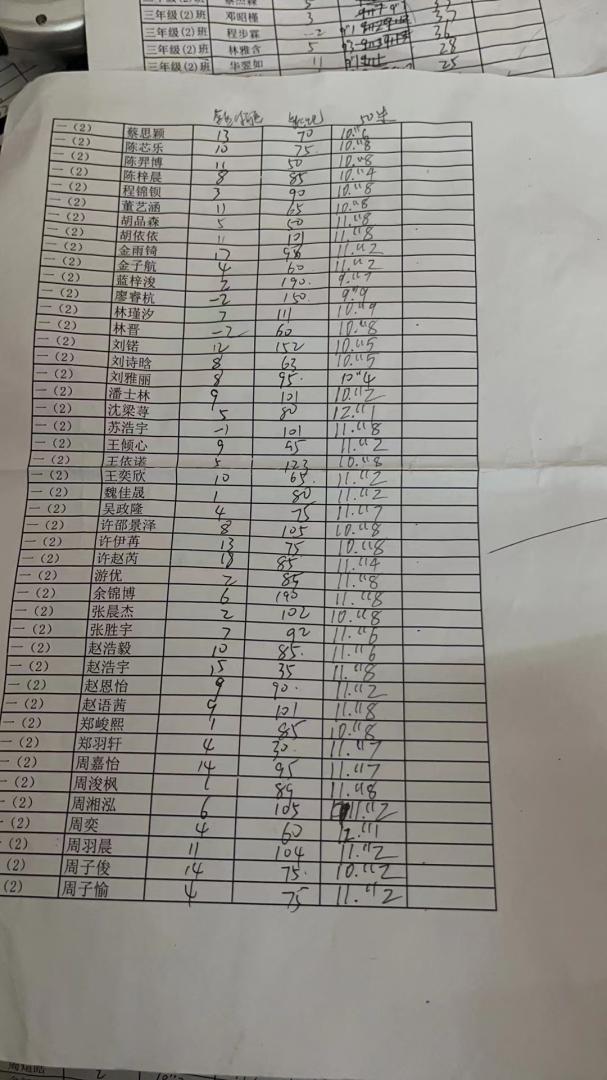 三年级(2)班 邓昭槿 3
三年级(2)班 程步霖 -2
三年级(2)班 林雅含 5 28
三年级(2)班 华翌如 11 25
50米
一(2) 蔡思颖 13 70 10."6
一(2) 陈芯乐 10 75. 10."8
一(2) 陈羿博 11 50 10."8
一(2) 陈梓晨 8 85 10."4
一(2) 程锦钡 3 90 10."8
一(2) 董艺涵 11 65 10."8
一(2) 胡品森 5 50 11."8
一(2) 胡依依 11 101 11."8
一(2) 金雨锜 17 98 11."2
一(2) 金子航 4 60 11."2
一(2) 蓝梓浚 2 190. 9."7
一(2) 廖睿杭 -2 150. 9."9
一(2) 林瑾汐 7 111 10."9
一(2) 林晋 -2 60 10."8
一(2) 刘锘 12 152 10."5
一(2) 刘诗晗 8 63 10."5
一(2) 刘雅丽 8 95. 10"4
一(2) 潘士林 9 101 10."2
一(2) 沈梁荨 5 80 12."1
一(2) 苏浩宇 -1 101 11."8
一(2) 王倾心 9 95 11."2
一(2) 王依诺 5 123 10."8
一(2) 王奕欣 10 65. 11."2
一(2) 魏佳晟 1 80 11."2
一(2) 吴政隆 4 75 11."7
一(2) 许邵景泽 8 105 10."8
一(2) 许伊苒 13 75 10."8
一(2) 许赵芮 18 85 11."4
一(2) 游优 2 85 11."8
一(2) 余锦博 6 190 11."8
一(2) 张晨杰 2 102 10."8
一(2) 张胜宇 7 92 11."6
一(2) 赵浩毅 10 85. 11."6
一(2) 赵浩宇 15 35 11."8
一(2) 赵恩怡 9 90. 11."2
一(2) 赵语茜 9 101 11."8
一(2) 郑峻熙 1 85 10."8
一(2) 郑羽轩 4 30. 11."7
一(2) 周嘉怡 14 95 11."7
一(2) 周浚枫 1 89 11."8
一(2) 周湘泓 6 105 11."2
一(2) 周奕 4 60 12."1
一(2) 周羽晨 11 104 11."2
(2) 周子俊 14 75. 10."2
(2) 周子愉 4 75 11."2